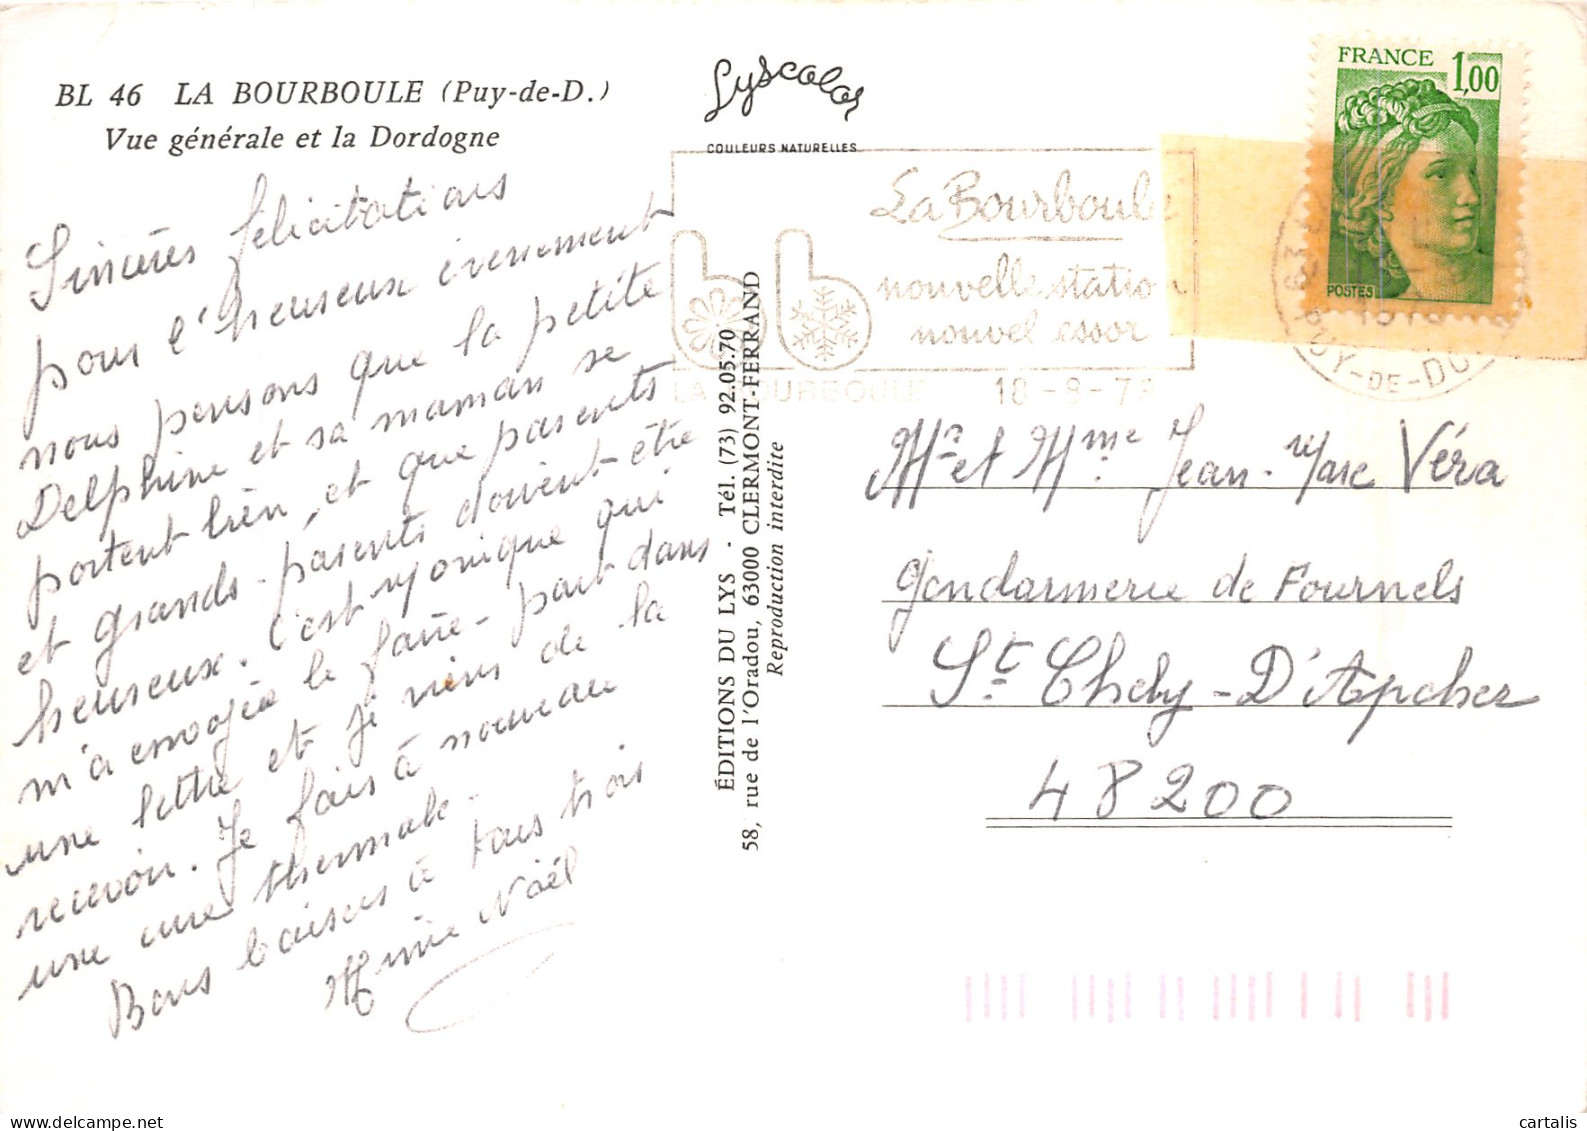 BL 46 LA BOURBOULE (Puy-de-D.)
Vue générale et la Dordogne
Sincères félicitations
pour l'heureux évènement
nous pensons que la petite
Delphine et sa maman se
portent bien, et que parents
et grands-parents doivent être
heureux. C'est Monique qui
m'a envoyée le faire-part dans
une lettre et je viens de la
recevoir. Je fais à nouveau
une cure thermale.
Bons baisers à tous trois
Mimie Noël
Lyscolor
COULEURS NATURELLES
ÉDITIONS DU LYS - Tél. (73) 92.05.70
58, rue de l'Oradou, 63000 CLERMONT-FERRAND
Reproduction interdite
La Bourboule
nouvelle station
nouvel essor
LA BOURBOULE 18-8-78
FRANCE 1,00
POSTES
63
PUY-DE-DOME
Mr et Mme Jean-Marc Véra
Gendarmerie de Fournels
St Chely-D'Apcher
48200
cartalis